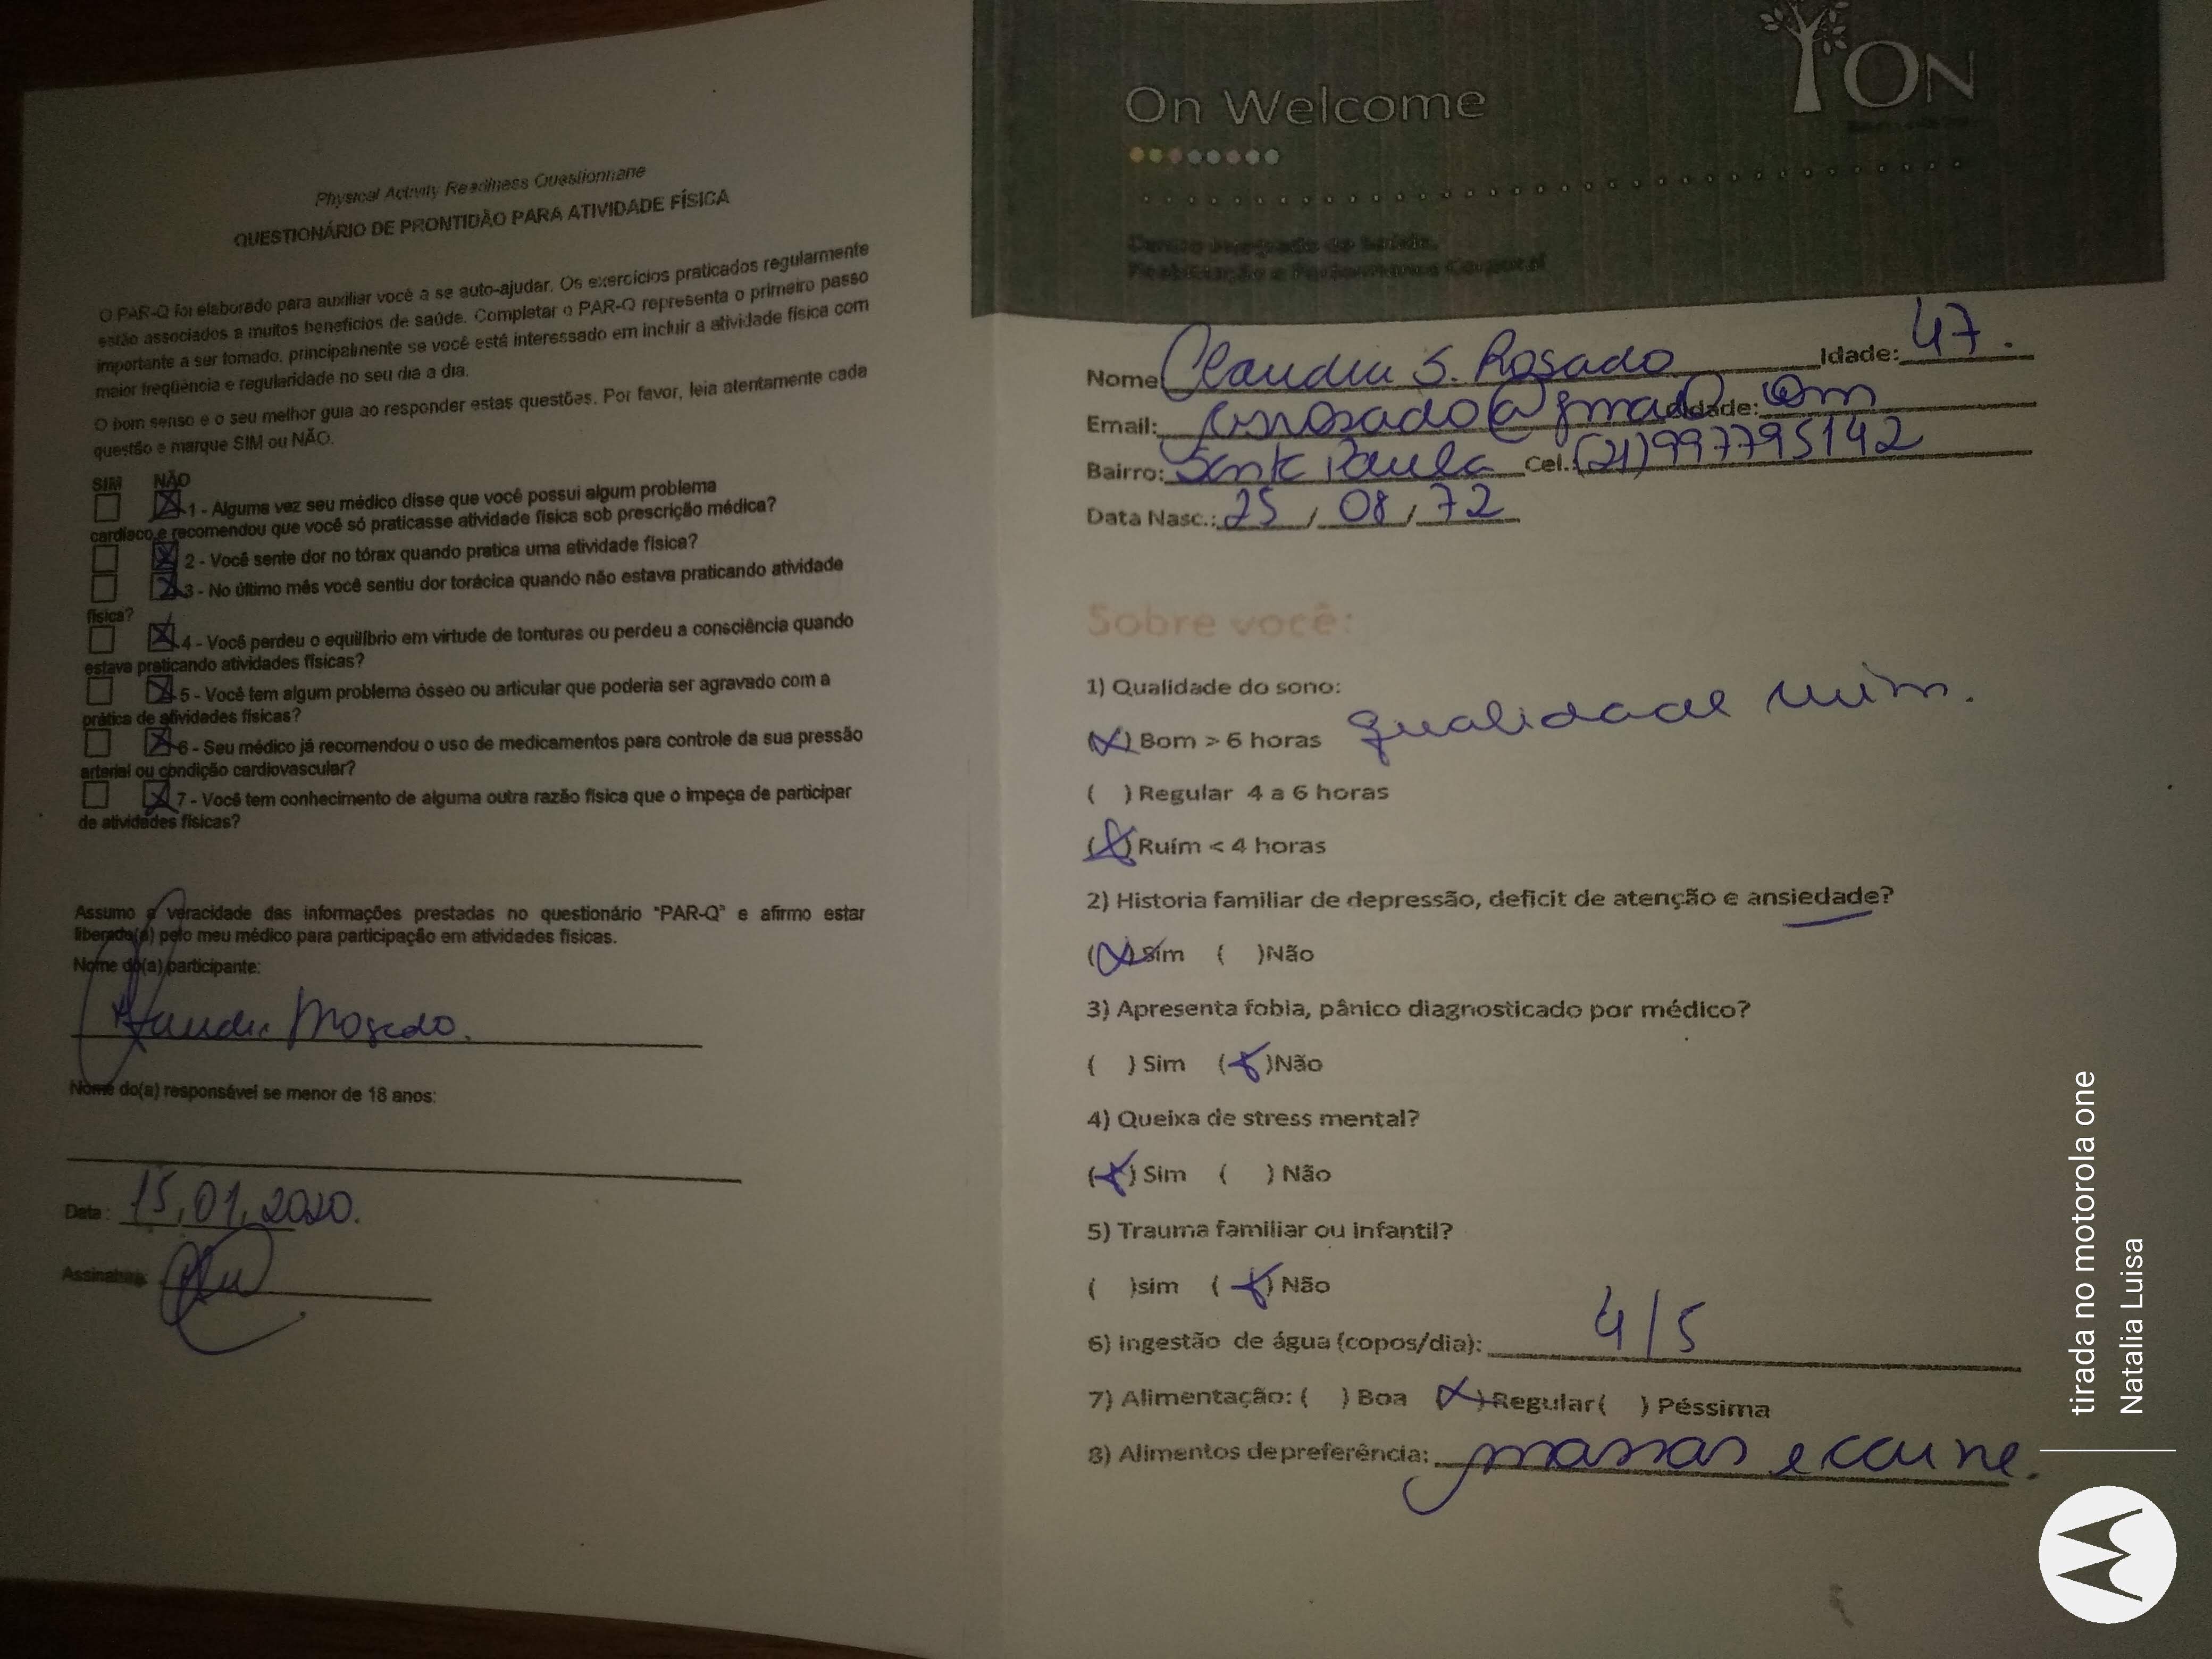 Physical Activity Readiness Questionnaire
QUESTIONÁRIO DE PRONTIDÃO PARA ATIVIDADE FÍSICA
O PAR-Q foi elaborado para auxiliar você a se auto-ajudar. Os exercícios praticados regularmente
estão associados a muitos benefícios de saúde. Completar o PAR-Q representa o primeiro passo
importante a ser tomado, principalmente se você está interessado em incluir a atividade física com
maior freqüência e regularidade no seu dia a dia.
O bom senso e o seu melhor guia ao responder estas questões. Por favor, leia atentamente cada
questão e marque SIM ou NÃO.
SIM NÃO
1 - Alguma vez seu médico disse que você possui algum problema
cardíaco e recomendou que você só praticasse atividade física sob prescrição médica?
2 - Você sente dor no tórax quando pratica uma atividade física?
3 - No último mês você sentiu dor torácica quando não estava praticando atividade
física?
4 - Você perdeu o equilíbrio em virtude de tonturas ou perdeu a consciência quando
estava praticando atividades físicas?
5 - Você tem algum problema ósseo ou articular que poderia ser agravado com a
prática de atividades físicas?
6 - Seu médico já recomendou o uso de medicamentos para controle da sua pressão
arterial ou condição cardiovascular?
7 - Você tem conhecimento de alguma outra razão física que o impeça de participar
de atividades físicas?
Assumo a veracidade das informações prestadas no questionário "PAR-Q" e afirmo estar
liberado(a) pelo meu médico para participação em atividades físicas.
Nome do(a) participante:
Nome do(a) responsável se menor de 18 anos:
Data: 15,01,2020.
Assinatura
On Welcome
ON
Nome Claudia S. Rosado Idade: 47.
Email: crosado@gmail.com
Bairro: Cel.: (21) 997795142
Data Nasc.: 25 / 08 / 72
Sobre você:
1) Qualidade do sono:
(X) Bom > 6 horas qualidade ruim.
( ) Regular 4 a 6 horas
(X) Ruím < 4 horas
2) Historia familiar de depressão, deficit de atenção e ansiedade?
(X) sim ( )Não
3) Apresenta fobia, pânico diagnosticado por médico?
( ) Sim (X)Não
4) Queixa de stress mental?
(X) Sim ( ) Não
5) Trauma familiar ou infantil?
( )sim (X) Não
6) Ingestão de água (copos/dia): 4/5
7) Alimentação: ( ) Boa (X) Regular ( ) Péssima
8) Alimentos de preferência: massas e carne.
tirada no motorola one
Natalia Luisa